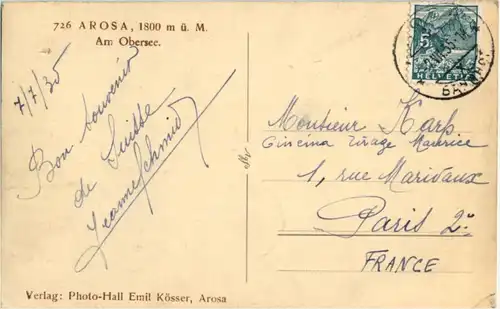 726 AROSA, 1800 m ü. M.
Am Obersee.
7/7/35
Bon souvenir
de Suisse
Jeanne Schmid
Verlag: Photo-Hall Emil Kösser, Arosa
5
HELVETIA
BAHNHOF
Monsieur Karp
Cinéma Tirage Maurice
1, rue Marivaux
Paris 2e
FRANCE